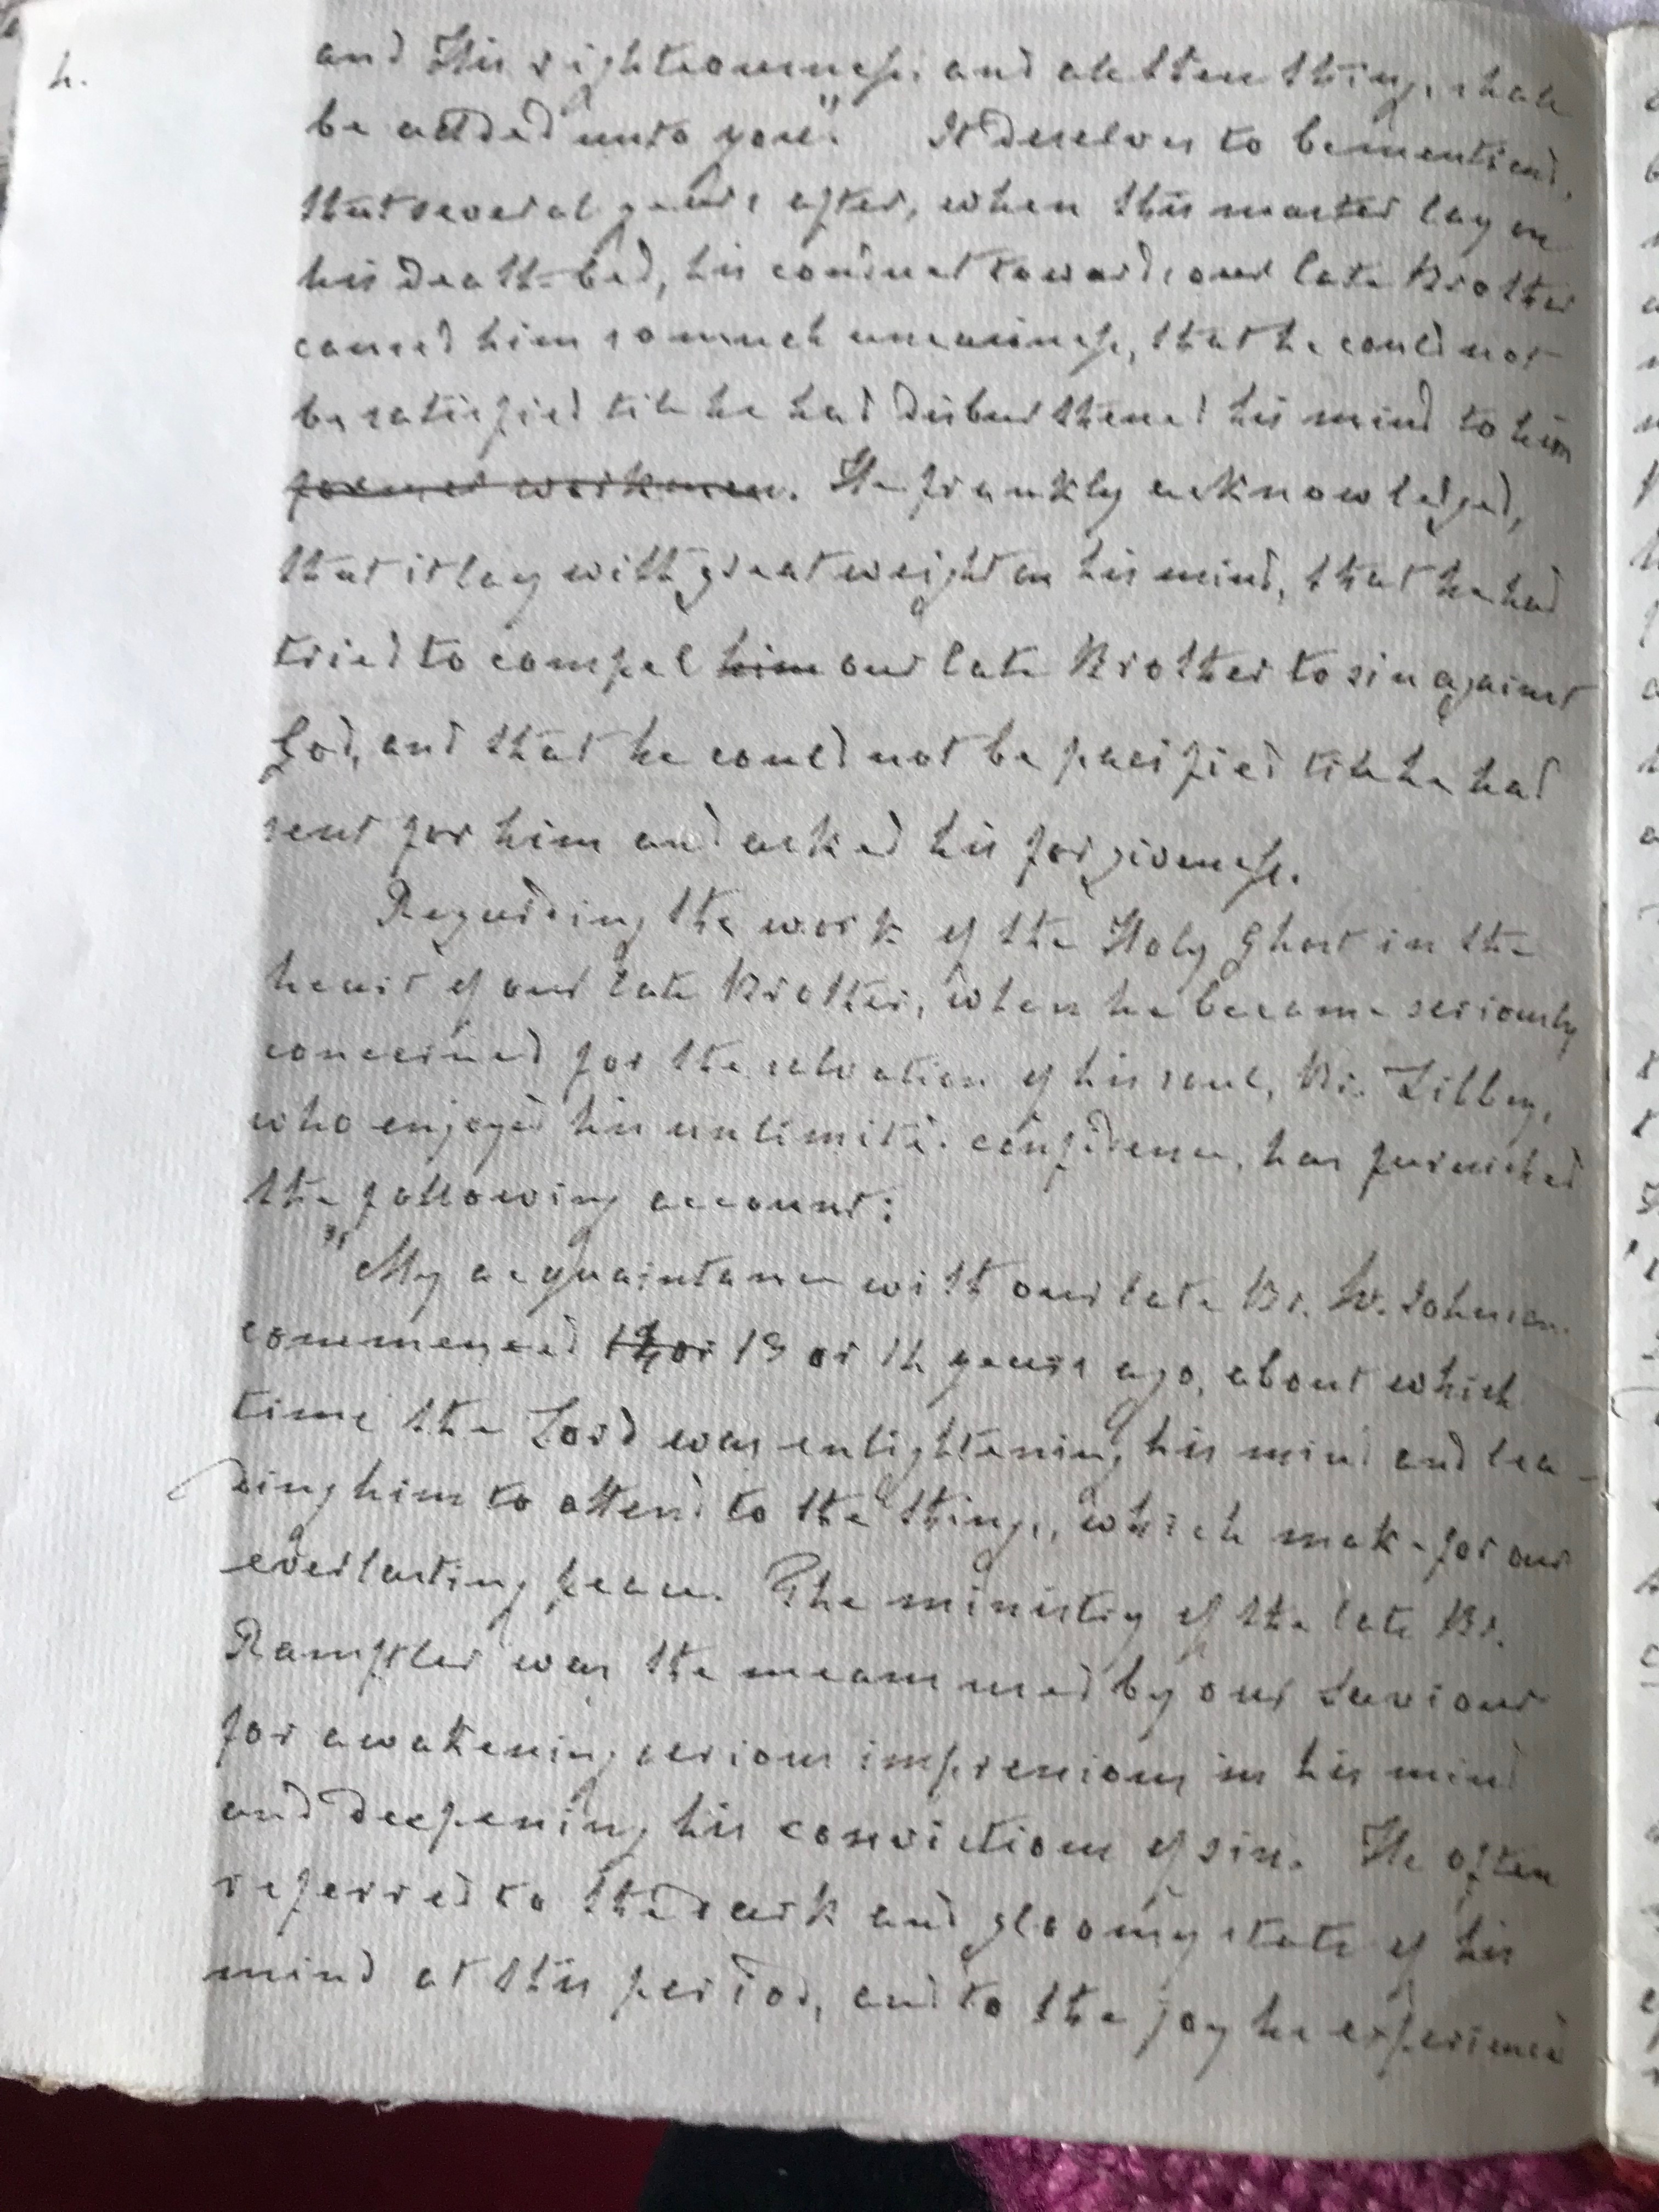 4.
and His righteousness, and all these things shall
be added unto you". It deserves to be mentioned,
that several years after, when this master lay on
his death-bed, his conduct towards our late Brother
caused him so much uneasiness, that he could not
be satisfied till he had disburthened his mind to him
former workman. He frankly acknowledged,
that it lay with great weight on his mind, that he had
tried to compel him our late Brother to sin against
God, and that he could not be pacified till he had
sent for him and asked his forgiveness.
Regarding the work of the Holy Ghost in the
heart of our late Brother, when he became seriously
concerned for the salvation of his soul, Br. Libbey,
who enjoyed his unlimited confidence, has furnished
the following account:
"My acquaintance with our late Br. W. Johnson
commenced 12 or 13 or 14 years ago, about which
time the Lord was enlightening his mind and lea-
ding him to attend to the things, which make for our
everlasting peace. The ministry of the late Br.
Ramftler was the means used by our Saviour
for awakening serious impressions in his mind
and deepening his convictions of sin. He often
referred to the dark and gloomy state of his
mind at this period, and to the joy he experienced